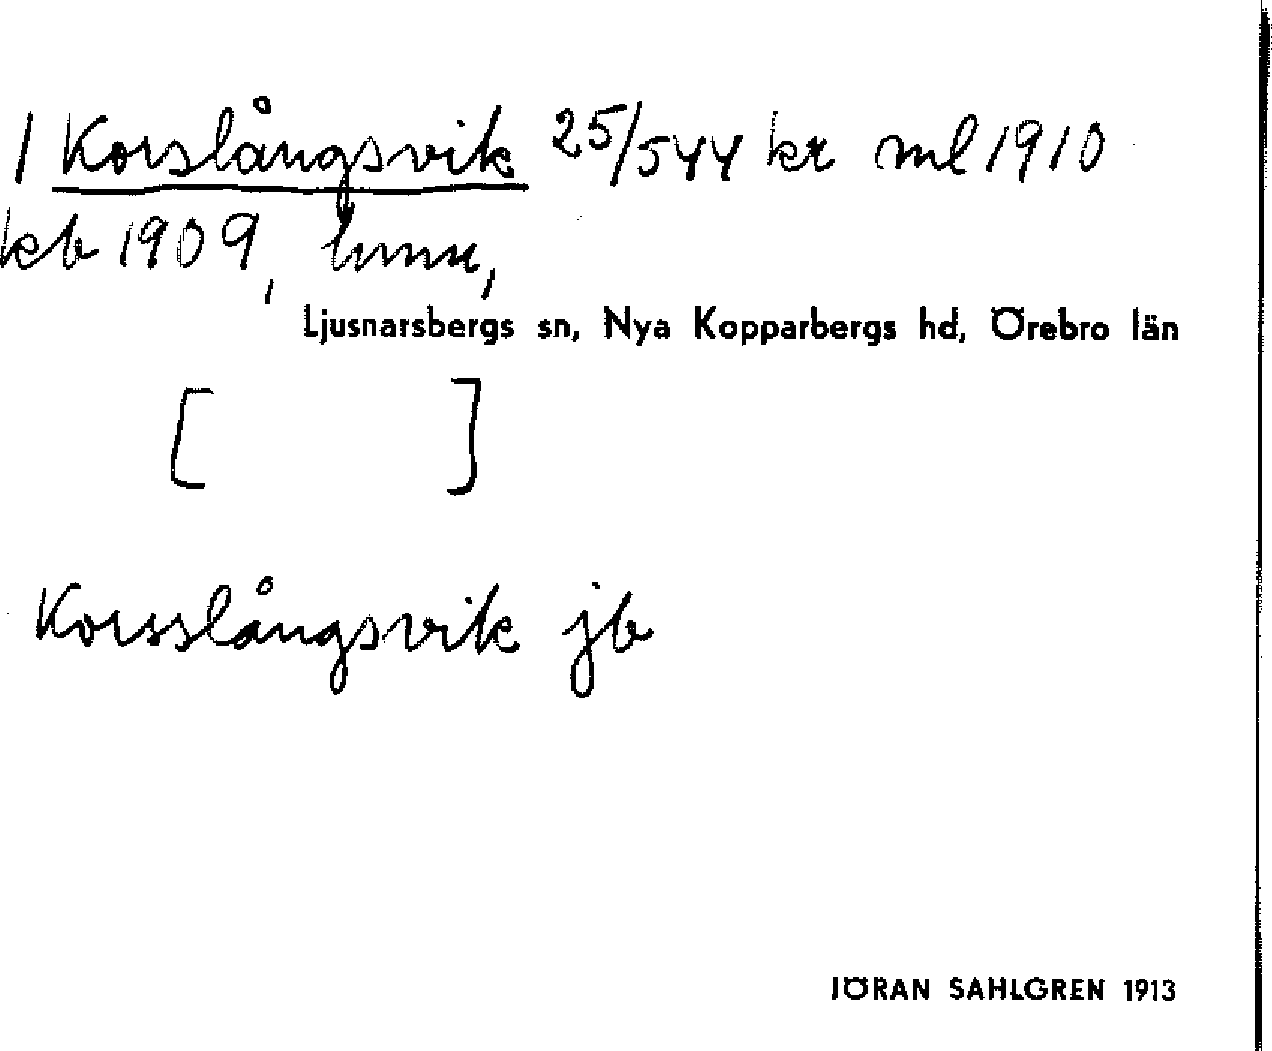 1 Korslångsvik 25/544 kr ml 1910
kb 1909, hmm,
Ljusnarsbergs sn, Nya Kopparbergs hd, Örebro län
[ ]
Korsslångsvik jb
JÖRAN SAHLGREN 1913